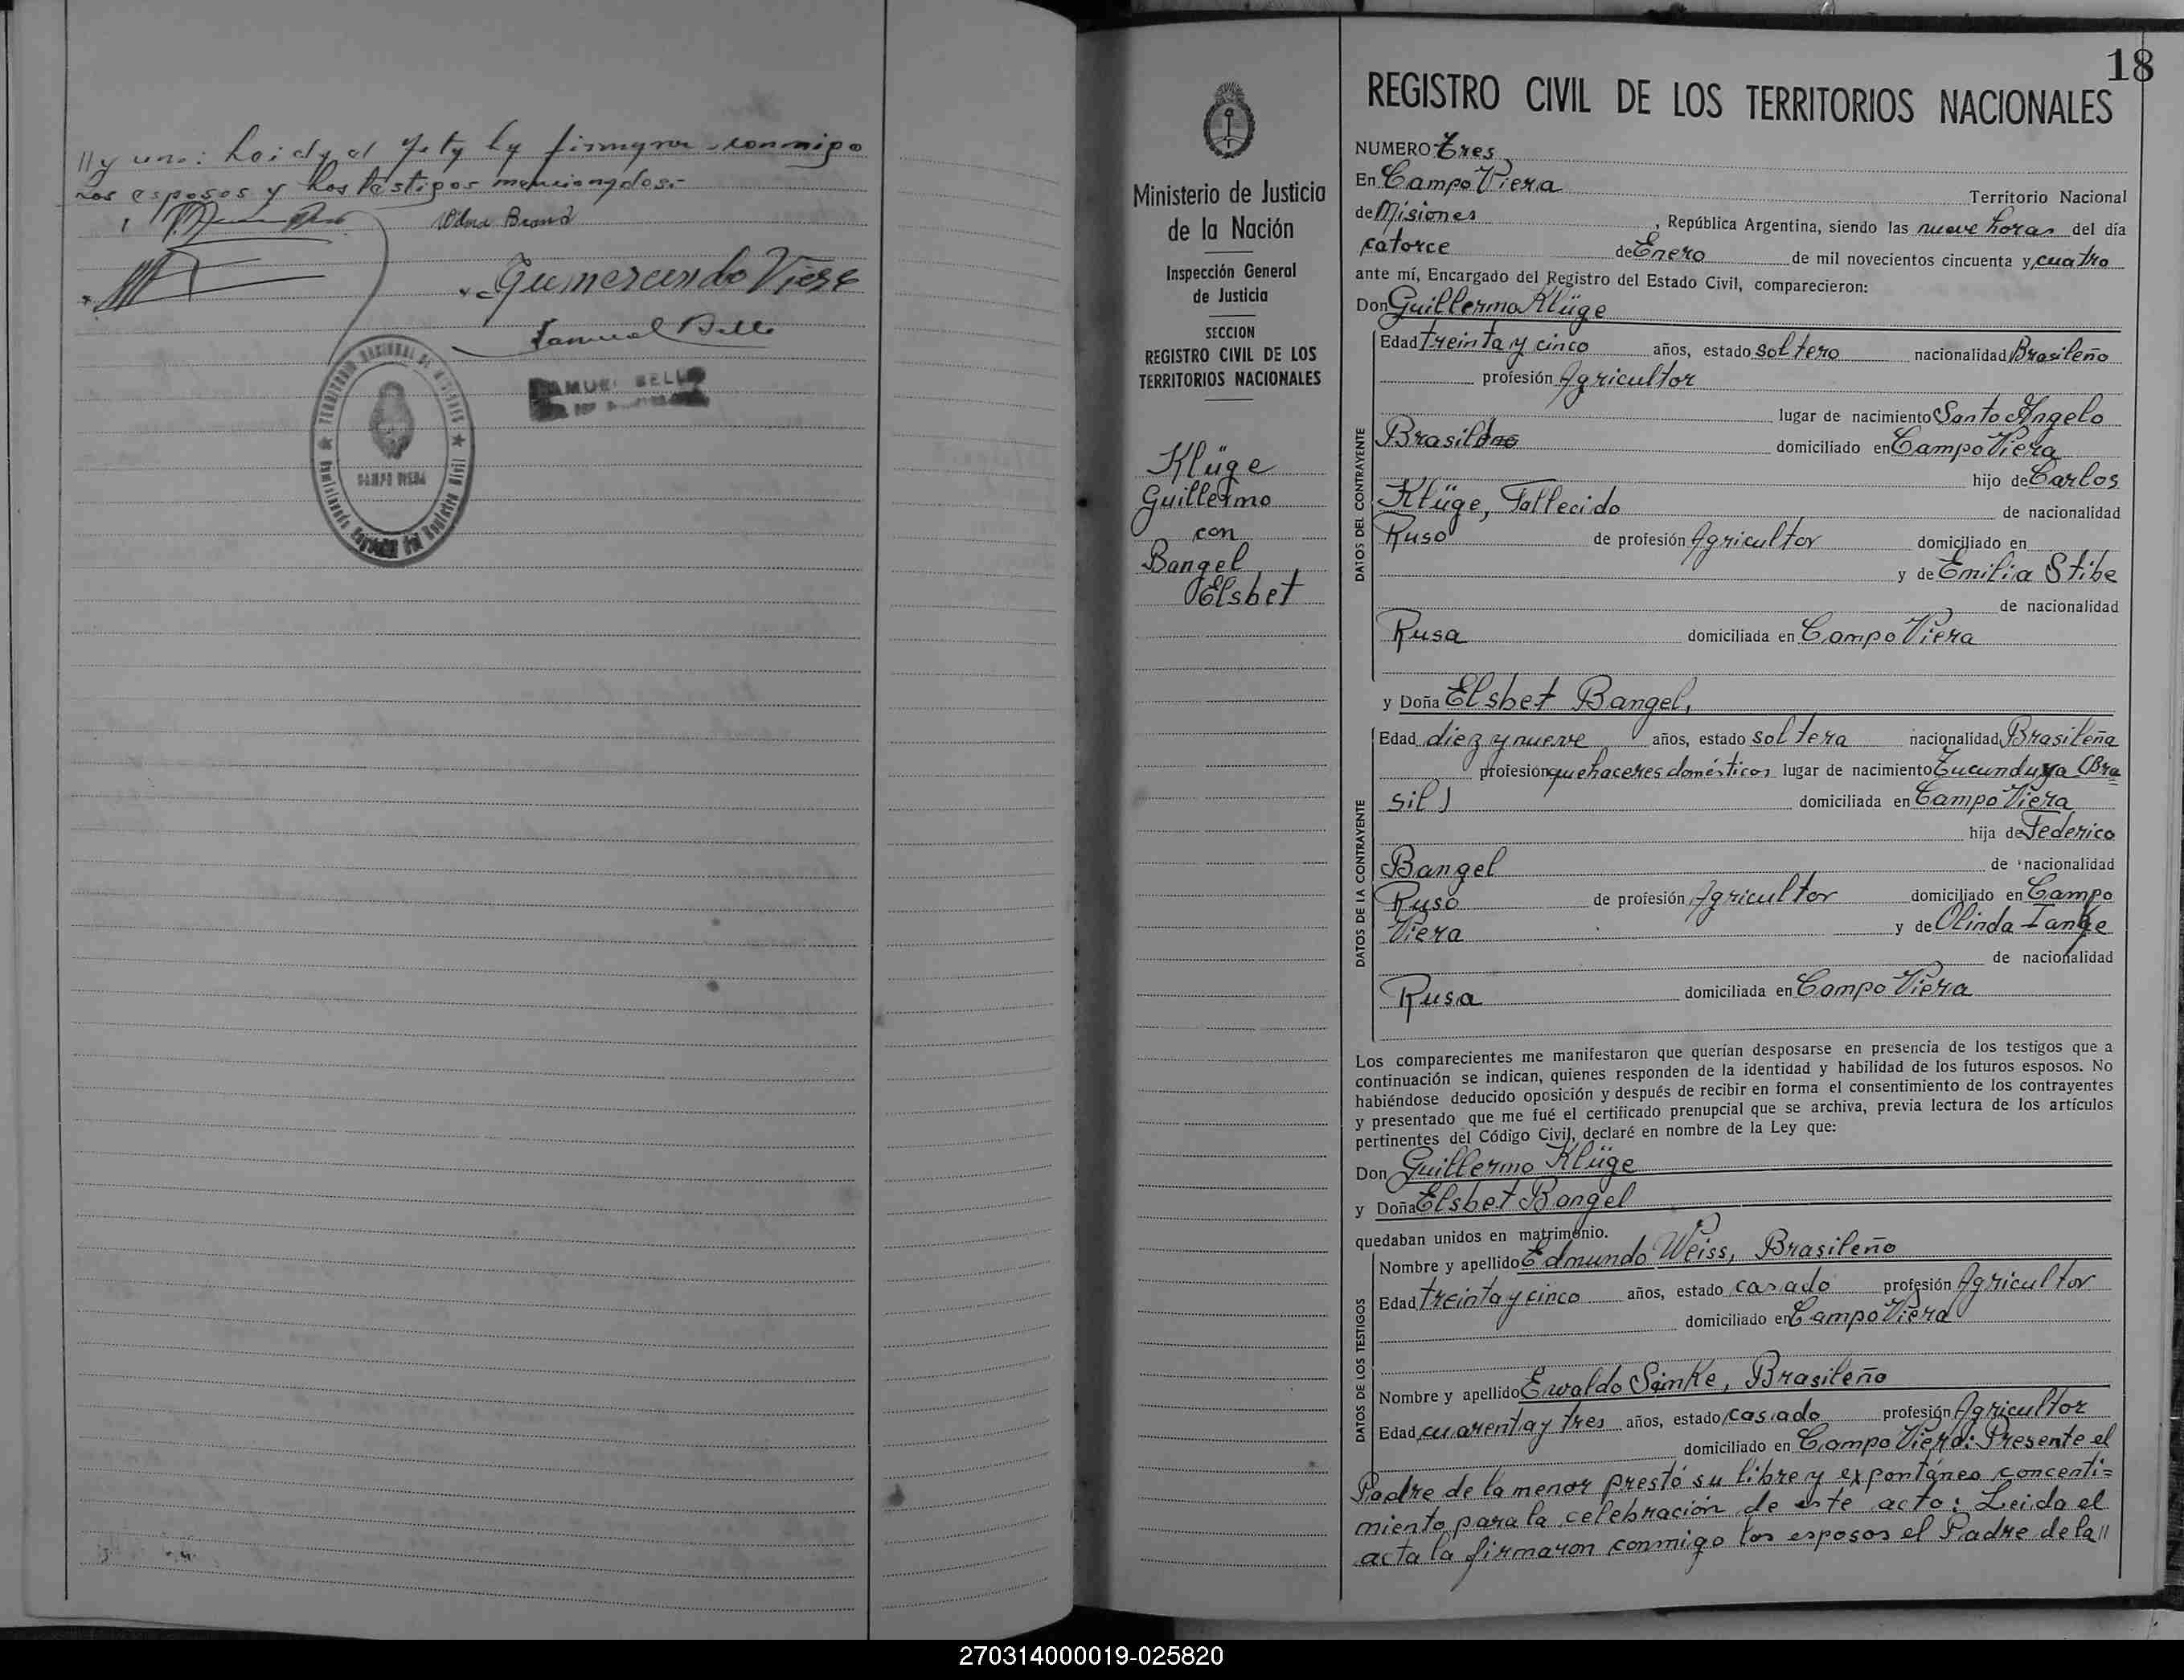 //y uno: Leida el acta la firmaron conmigo
los esposos y los testigos mencionados.-
Gumercindo Viera
Samuel Bello
SAMUEL BELLO
TERRITORIO NACIONAL DE MISIONES
CAMPO VIERA
18
REGISTRO CIVIL DE LOS TERRITORIOS NACIONALES
Ministerio de Justicia
de la Nación
Inspección General
de Justicia
SECCION
REGISTRO CIVIL DE LOS
TERRITORIOS NACIONALES
Klüge
Guillermo
con
Bangel
Elsbet
NUMERO tres
En Campo Viera Territorio Nacional
de Misiones, República Argentina, siendo las nueve horas del día
catorce de Enero de mil novecientos cincuenta y cuatro
ante mí, Encargado del Registro del Estado Civil, comparecieron:
Don Guillermo Klüge
DATOS DEL CONTRAYENTE
Edad treinta y cinco años, estado soltero nacionalidad Brasileño
profesión Agricultor
lugar de nacimiento Santo Angelo
Brasil domiciliado en Campo Viera
hijo de Carlos
Klüge, Fallecido de nacionalidad
Ruso de profesión Agricultor domiciliado en
y de Emilia Stibe
de nacionalidad
Rusa domiciliada en Campo Viera
y Doña Elsbet Bangel,
DATOS DE LA CONTRAYENTE
Edad diez y nueve años, estado soltera nacionalidad Brasileña
profesión quehaceres domésticos lugar de nacimiento Tucunduva (Bra
sil) domiciliada en Campo Viera
hija de Federico
Bangel de nacionalidad
Ruso de profesión Agricultor domiciliado en Campo
Viera y de Olinda
de nacionalidad
Rusa domiciliada en Campo Viera
Los comparecientes me manifestaron que querían desposarse en presencia de los testigos que a
continuación se indican, quienes responden de la identidad y habilidad de los futuros esposos. No
habiéndose deducido oposición y después de recibir en forma el consentimiento de los contrayentes
y presentado que me fué el certificado prenupcial que se archiva, previa lectura de los artículos
pertinentes del Código Civil, declaré en nombre de la Ley que:
Don Guillermo Klüge
y Doña Elsbet Bangel
quedaban unidos en matrimonio.
DATOS DE LOS TESTIGOS
Nombre y apellido Edmundo Weiss, Brasileño
Edad treinta y cinco años, estado casado profesión Agricultor
domiciliado en Campo Viera
Nombre y apellido Ewaldo Simke, Brasileño
Edad cuarenta y tres años, estado casado profesión Agricultor
domiciliado en Campo Viera: Presente el
Padre de la menor prestó su libre y expontáneo concenti=
miento para la celebración de este acto: Leida el
acta la firmaron conmigo los esposos el Padre de la//
270314000019-025820